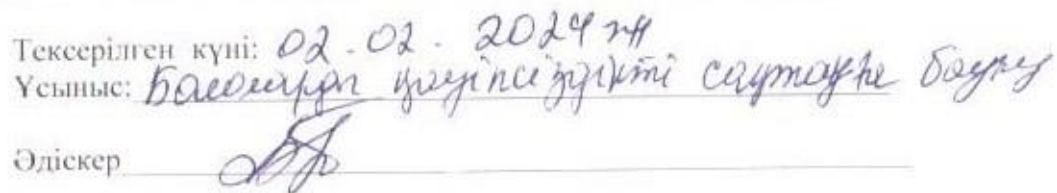 Тексерілген күні: 02.02.2024 ж
Ұсыныс: Балаларды қауіпсіздікті сақтауға баулу
Әдіскер